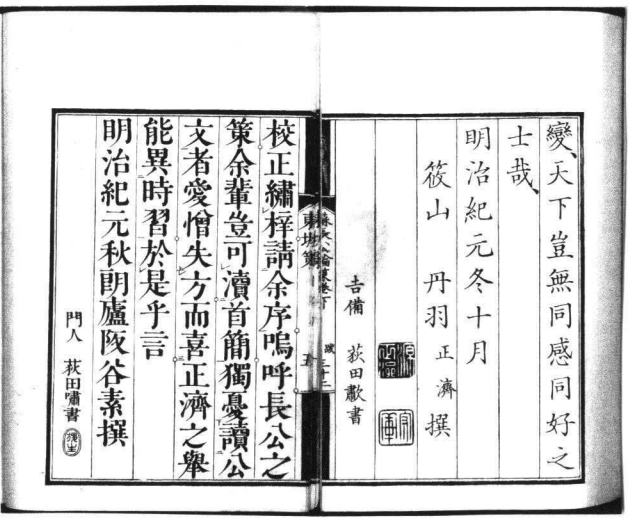 變天下豈無同感同好之
士哉
明治紀元冬十月
筱山 丹羽正濟撰
吉備 荻田歗書
校正繡梓請余序嗚呼長公之
策余輩豈可瀆首簡獨憂讀公
文者愛憎失方而喜正濟之舉
能異時習於是乎言
明治紀元秋朗廬阪谷素撰
門人 荻田嘯書